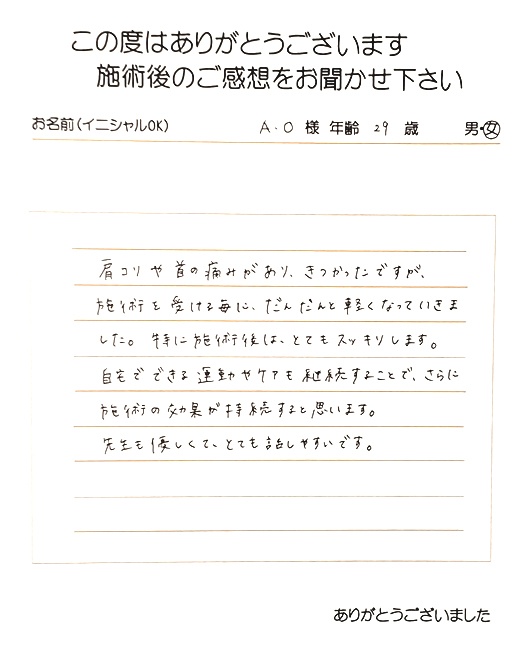 この度はありがとうございます
施術後のご感想をお聞かせ下さい
お名前(イニシャルOK) A.O 様 年齢 29 歳 男・女
肩コリや首の痛みがあり、きつかったですが、
施術を受ける毎に、だんだんと軽くなっていきま
した。特に施術後は、とてもスッキリします。
自宅でできる運動やケアも継続することで、さらに
施術の効果が持続すると思います。
先生も優しくて、とても話しやすいです。
ありがとうございました